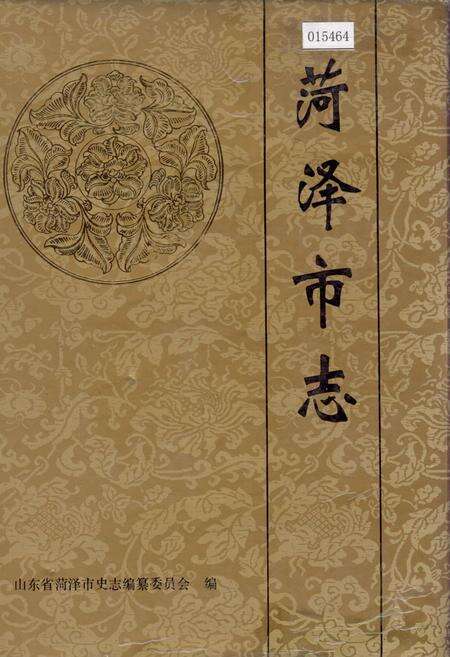 015464
菏泽市志
山东省菏泽市史志编纂委员会 编